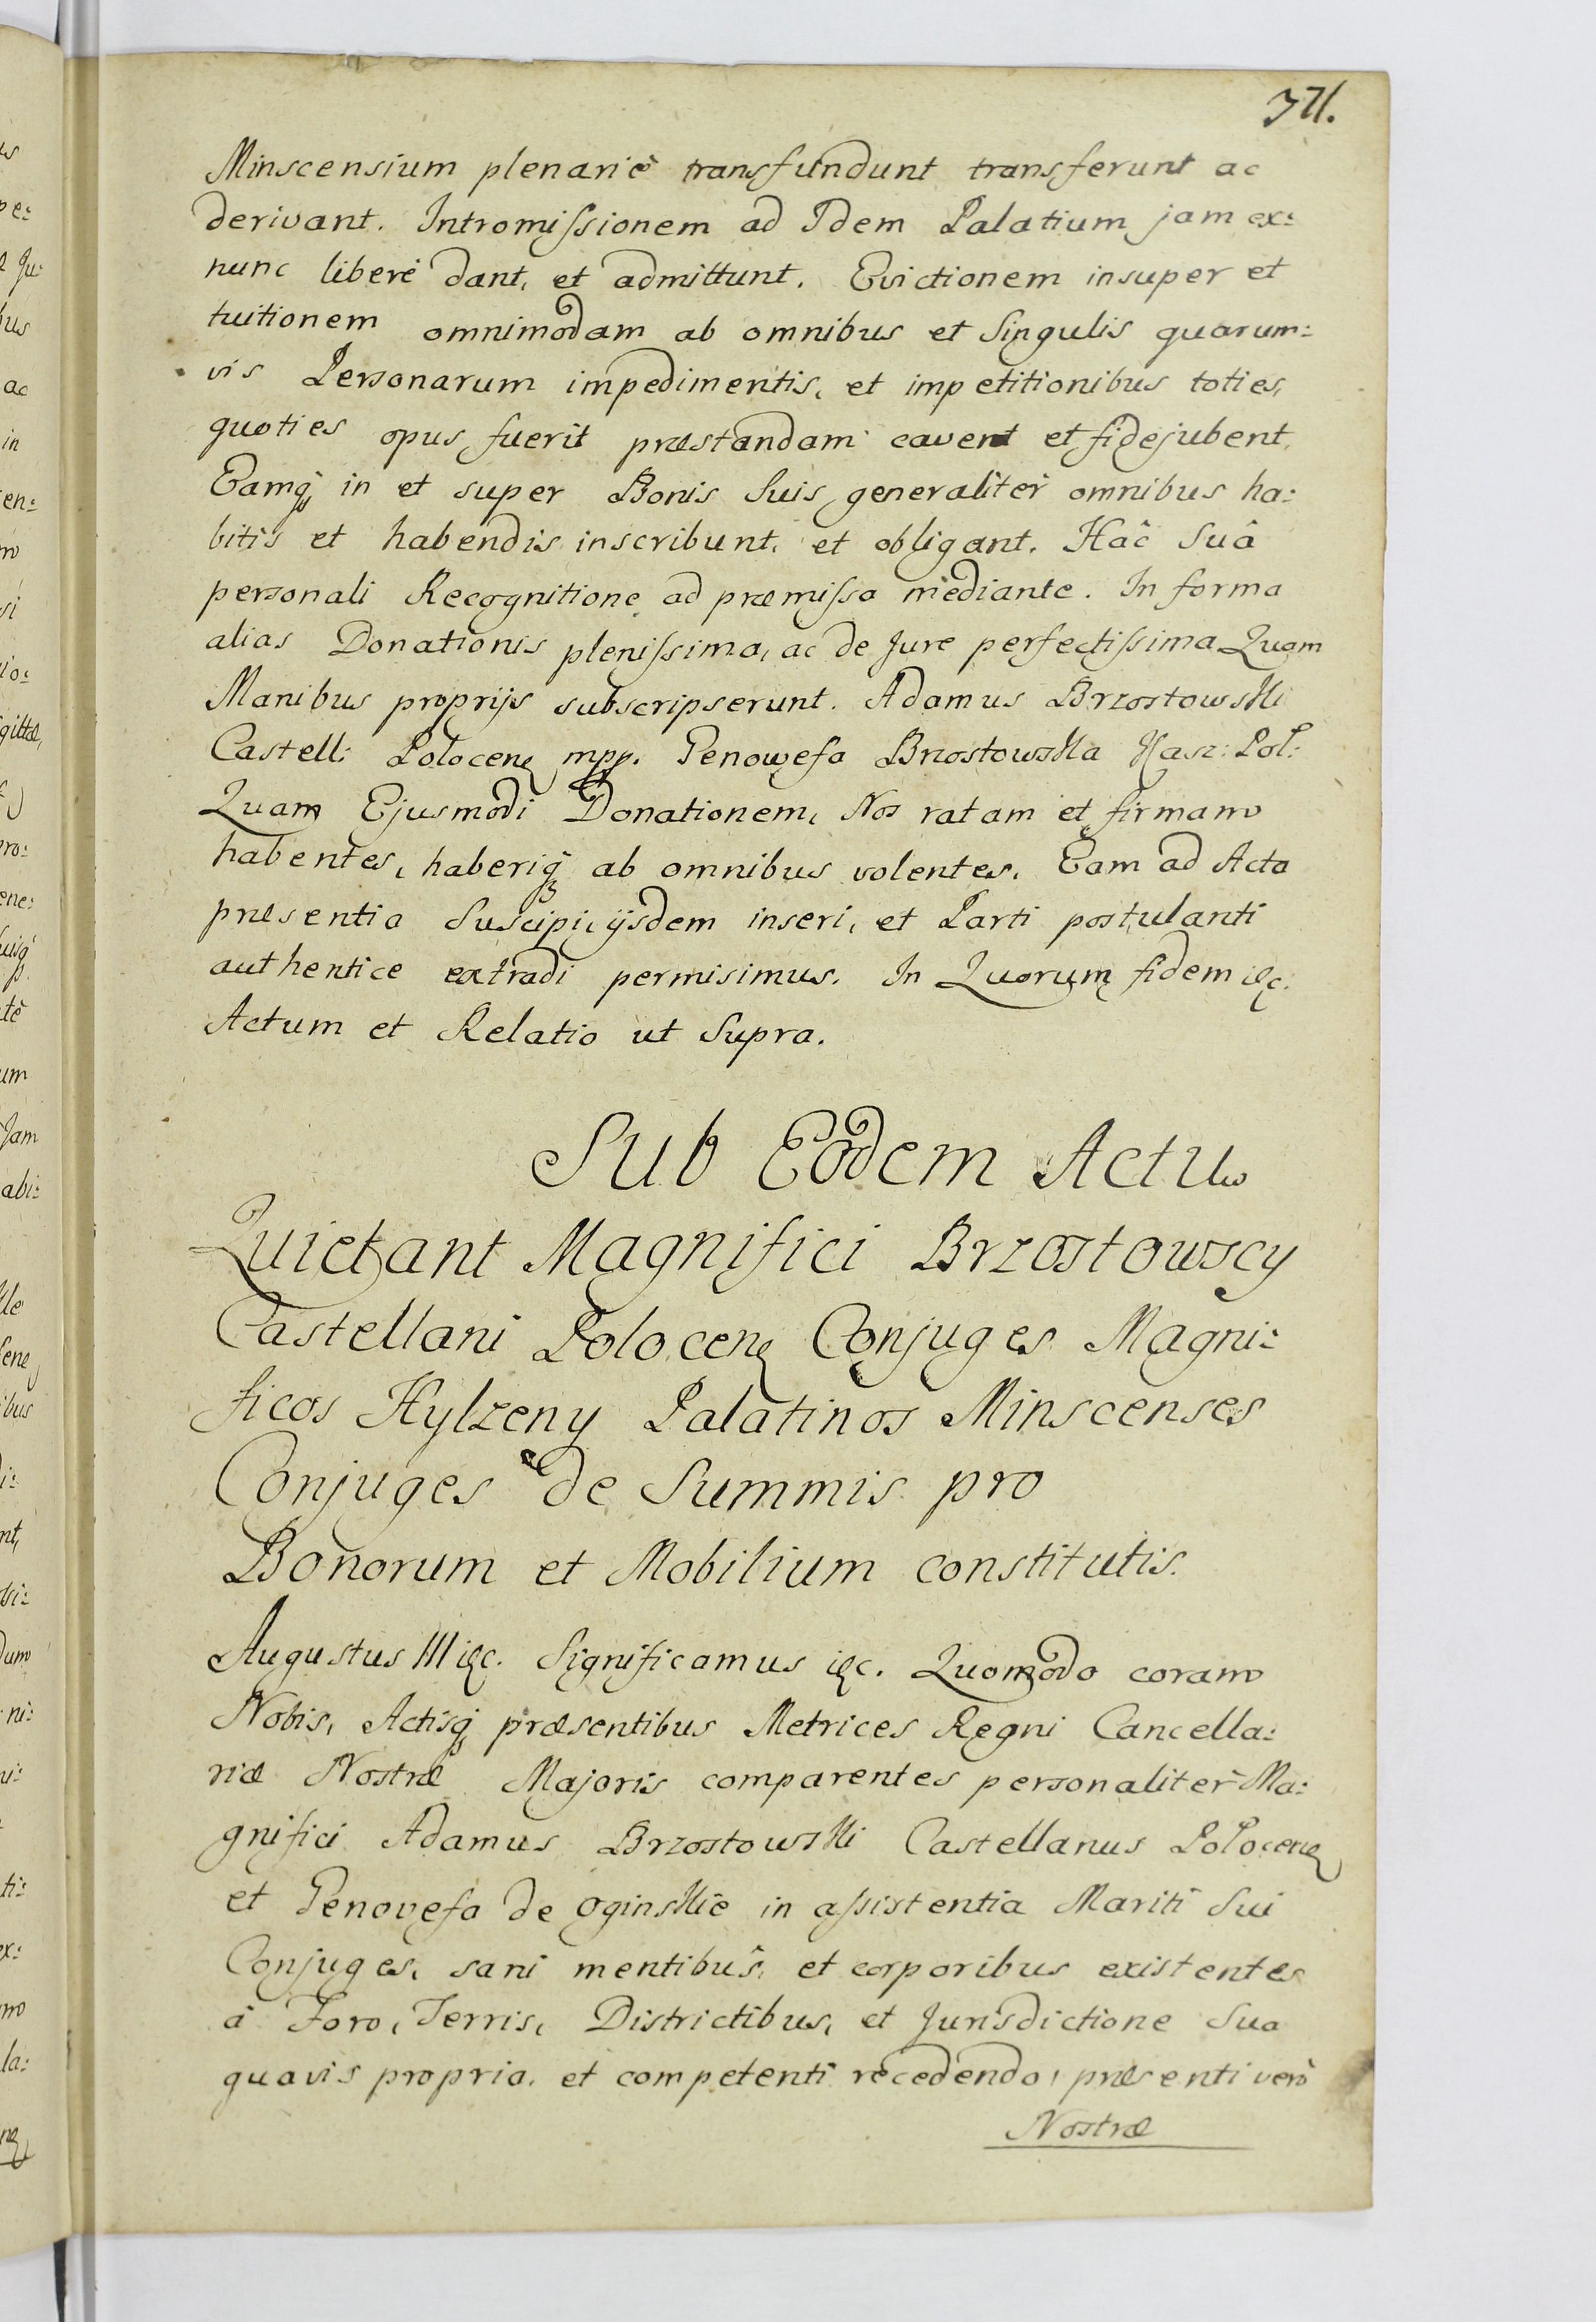 371.
Minscensium plenariè transfundunt transferunt ac
derivant. Intromissionem ad Idem Palatium jam ex:
nunc liberè dant, et admittunt. Evictionem insuper et
tuitionem omnimodam ab omnibus et Singulis quarum:
vis Personarum impedimentis, et impetitionibus toties,
quoties opus fuerit præstandam cavent et fidejubent
Eamq́ in et super Bonis Suis generalitèr omnibus ha:
bitis et habendis inscribunt, et obligant. Hâc Suâ
personali Recognitione ad præmissa mediante. In forma
alias Donationis plenissima, ac de Jure perfectissima Quam
Manibus proprijs subscripserunt. Adamus Brzostowski
Castell: Polocen mpp. Genowefa Brzostowska Kasz: Poł:
Quam Ejusmodi Donationem, Nos ratam et firmam
habentes, haberiq́ ab omnibus volentes, Eam ad Acta
præsentia Suscipi, ijsdem inseri, et Parti postulanti
authentice extradi permisimus. In Quorum fidem &c.
Actum et Relatio ut Supra.
Sub Eodem Actu
Quietant Magnifici Brzostowscy
Castellani Polocen Conjuges Magni:
ficos Hylzeny Palatinos Minscenses
Conjuges de Summis pro
Bonorum et Mobilium constitutis.
Augustus III &c. Significamus &c. Quomodo coram
Nobis, Actisq́ præsentibus Metrices Regni Cancella:
riæ Nostræ Majoris comparentes personalitèr Ma:
gnifici Adamus Brzostowski Castellanus Połocen
et Genovefa de Oginskie in assistentia Mariti Sui
Conjuges, sani mentibus, et corporibus existentes
à Foro, Terris, Districtibus, et Jurisdictione Sua
quavis propria, et competenti recedendo, præsenti verò
Nostræ